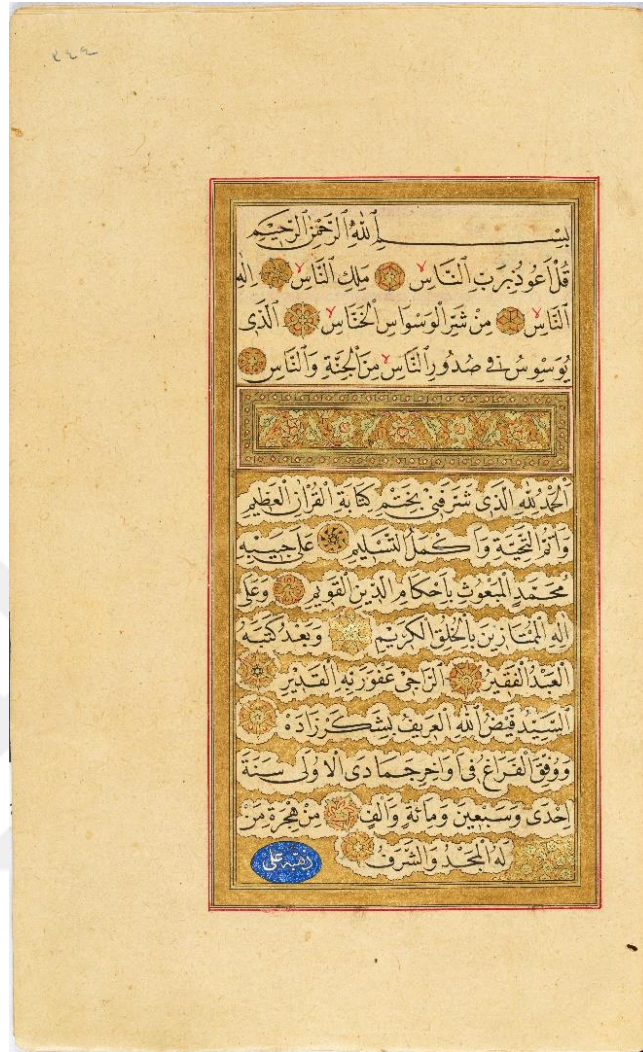 ٤٤٤
بِسْمِ ٱللّٰهِ ٱلرَّحْمٰنِ ٱلرَّحِيمِ
قُلْ اَعُوذُ بِرَبِّ ٱلنَّاسِ لا مَلِكِ ٱلنَّاسِ لا اِلٰهِ
ٱلنَّاسِ لا مِنْ شَرِّ ٱلْوَسْوَاسِ ٱلْخَنَّاسِ لا ٱلَّذِى
يُوَسْوِسُ فِى صُدُورِ ٱلنَّاسِ لا مِنَ ٱلْجِنَّةِ وَٱلنَّاسِ
اَلْحَمْدُ لِلّٰهِ الَّذِى شَرَّفَنِى بِخَتْمِ كِتَابَةِ الْقُرْاٰنِ الْعَظِيمِ
وَاَتَمُّ التَّحِيَّةِ وَاَكْمَلُ التَّسْلِيمِ عَلٰى حَبِيبِهِ
مُحَمَّدٍ الْمَبْعُوثِ بِاَحْكَامِ الدِّينِ الْقَوِيمِ وَعَلٰى
اٰلِهِ الْمُمْتَازِينَ بِالْخُلُقِ الْكَرِيمِ وَبَعْدُ كَتَبَهُ
الْعَبْدُ الْفَقِيرُ الرَّاجِى عَفْوَ رَبِّهِ الْقَدِيرِ
السَّيِّدُ فَيْضُ اللّٰهِ الْعَرِيفُ بِشَكَرْزَادَهْ
وَوُفِّقَ الْفَرَاغُ فِى اَوَاخِرِ جَمَادَى الْاُولٰى سَنَةَ
اِحْدَى وَسَبْعِينَ وَمِائَةٍ وَاَلْفٍ مِنْ هِجْرَةِ مَنْ
لَهُ الْمَجْدُ وَالشَّرَفُ
ذهّبه على